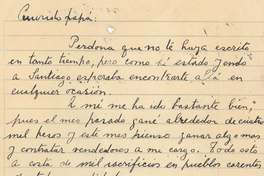 Querido papá:
Perdona que no te haya escrito
en tanto tiempo, pero como he estado yendo
a Santiago esperaba encontrarte allá en
cualquier ocasión.
A mí me ha ido bastante bien,
pues el mes pasado gané alrededor de cuatro
mil pesos y este mes pienso ganar algo mas
y contratar vendedores a mi cargo. Todo esto
a costa de mil sacrificios en pueblos carentes